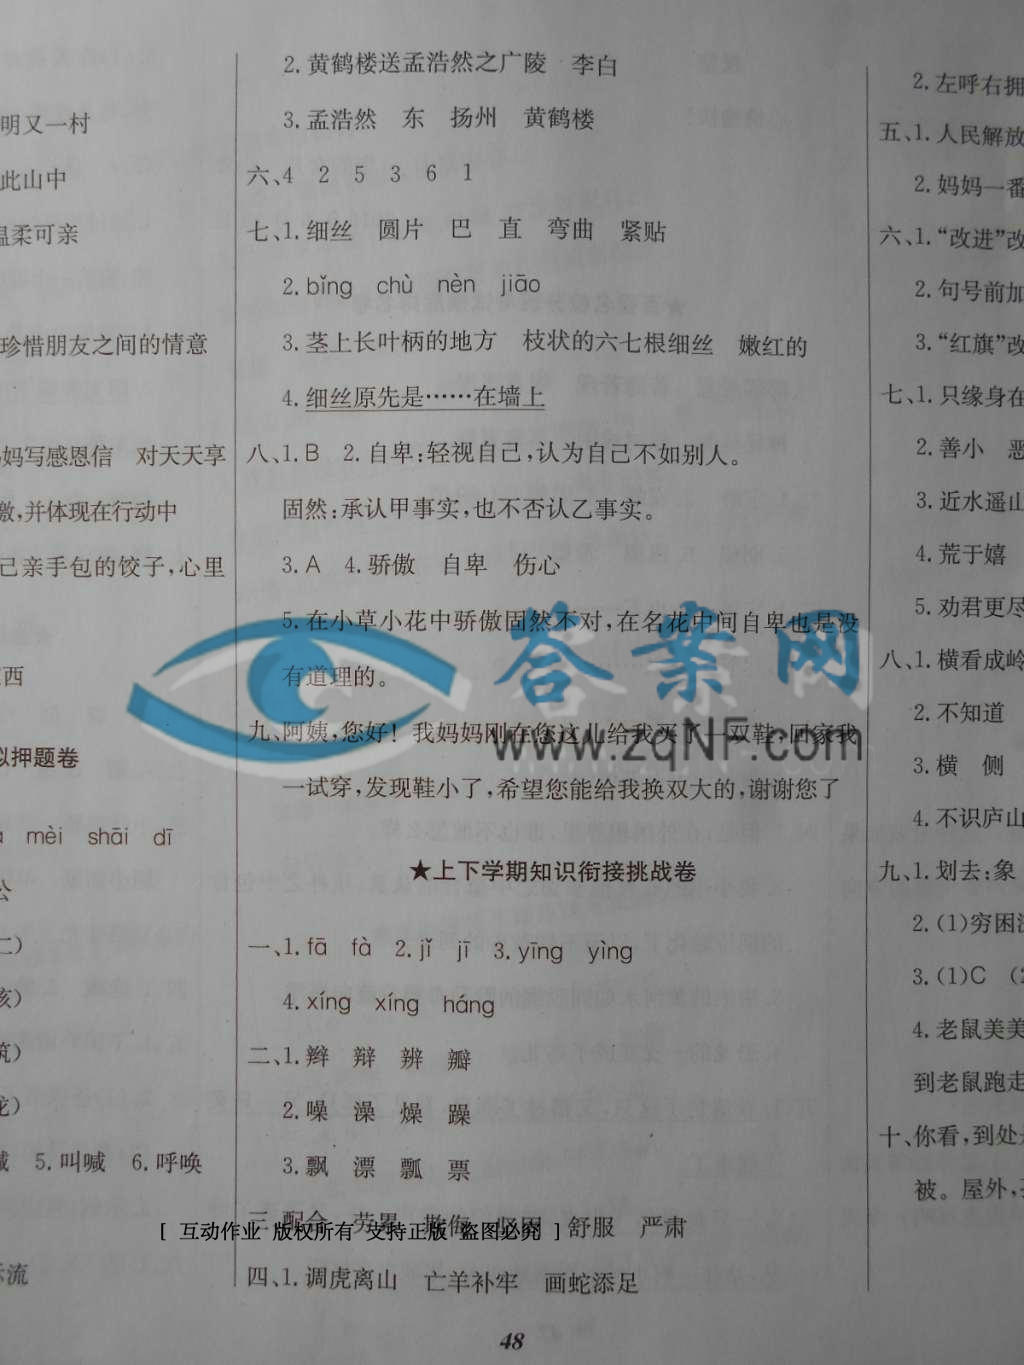 明又一村
此山中
温柔可亲
珍惜朋友之间的情意
妈妈写感恩信 对天天享
激,并体现在行动中
己亲手包的饺子,心里
西
拟押题卷
mèi shāi dī
公
仁)
亥)
筑)
龙)
喊 5.叫喊 6.呼唤
流
2.黄鹤楼送孟浩然之广陵 李白
3.孟浩然 东 扬州 黄鹤楼
六、4 2 5 3 6 1
七、1.细丝 圆片 巴 直 弯曲 紧贴
2.bǐng chù nèn jiāo
3.茎上长叶柄的地方 枝状的六七根细丝 嫩红的
4.细丝原先是……在墙上
八、1.B 2.自卑:轻视自己,认为自己不如别人。
固然:承认甲事实,也不否认乙事实。
3.A 4.骄傲 自卑 伤心
5.在小草小花中骄傲固然不对,在名花中间自卑也是没
有道理的。
九、阿姨,您好! 我妈妈刚在您这儿给我买了一双鞋,回家我
一试穿,发现鞋小了,希望您能给我换双大的,谢谢您了
★上下学期知识衔接挑战卷
一、1.fā fà 2.jǐ jī 3.yīng yìng
4.xíng xíng háng
二、1.辫 辩 辨 瓣
2.噪 澡 燥 躁
3.飘 漂 瓢 票
三 配合 劳累 欺侮 坚固 舒服 严肃
四、1.调虎离山 亡羊补牢 画蛇添足
2.左呼右拥
五、1.人民解放
2.妈妈一番
六、1.“改进”改
2.句号前加
3.“红旗”改
七、1.只缘身在
2.善小 恶
3.近水遥山
4.荒于嬉
5.劝君更尽
八、1.横看成岭
2.不知道
3.横 侧
4.不识庐山
九、1.划去:象
2.(1)穷困
3.(1)C (2
4.老鼠美美
到老鼠跑走
十、你看,到处
被。屋外,
48
答案网
www.zqNF.com
[ 互动作业 版权所有 支持正版 盗图必究 ]